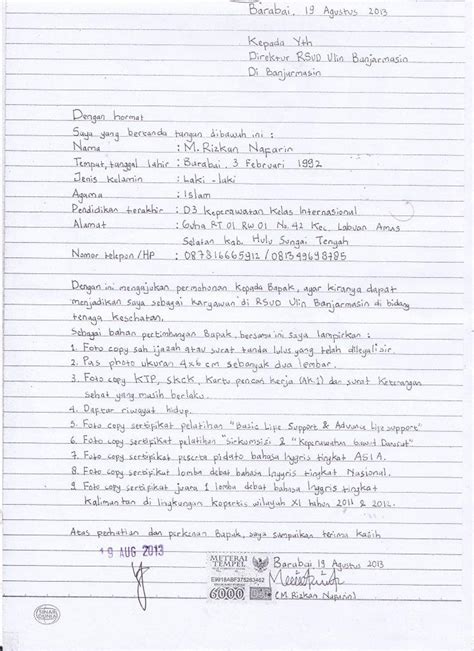 Barabai, 19 Agustus 2013
Kepada Yth
Direktur RSUD Ulin Banjarmasin
Di Banjarmasin
Dengan hormat
Saya yang bertanda tangan dibawah ini :
Nama : M. Rizkan Nafarin
Tempat, tanggal lahir : Barabai, 3 Februari 1992
Jenis kelamin : Laki - laki
Agama : Islam
Pendidikan terakhir : D3 keperawatan Kelas Internasional
Alamat : RT 01 RW 01 No. 42 Kec. Labuan Amas
Selatan kab. Hulu Sungai Tengah
Nomor telepon / HP : 087816665912 / 081349698785
Dengan ini mengajukan permohonan kepada Bapak, agar kiranya dapat
menjadikan saya sebagai karyawan di RSUD Ulin Banjarmasin di bidang
tenaga kesehatan.
Sebagai bahan pertimbangan Bapak, bersama ini saya lampirkan :
1. Foto copy sah ijazah atau surat tanda lulus yang telah dilegalisir.
2. Pas photo ukuran 4x6 cm sebanyak dua lembar.
3. Foto copy KTP, SKCK, Kartu pencari kerja (AK.1) dan surat keterangan
sehat yang masih berlaku.
4. Daftar riwayat hidup.
5. Foto copy sertifikat pelatihan "Basic Life Support & Advance Life support"
6. Foto copy sertifikat pelatihan "sirkumsizi" & "Keperawatan Gawat Darurat"
7. Foto copy sertifikat peserta pidato bahasa Inggris tingkat ASIA.
8. Foto copy sertifikat lomba debat bahasa Inggris tingkat Nasional.
9. Foto copy sertifikat juara 1 lomba debat bahasa Inggris tingkat
Kalimantan di lingkungan kopertis wilayah XI tahun 2011 & 2012.
Atas perhatian dan perkenan Bapak, saya sampaikan terima kasih
19 AUG 2013
METERAI
TEMPEL
6000
Barabai, 19 Agustus 2013
(M. Rizkan Nafarin)